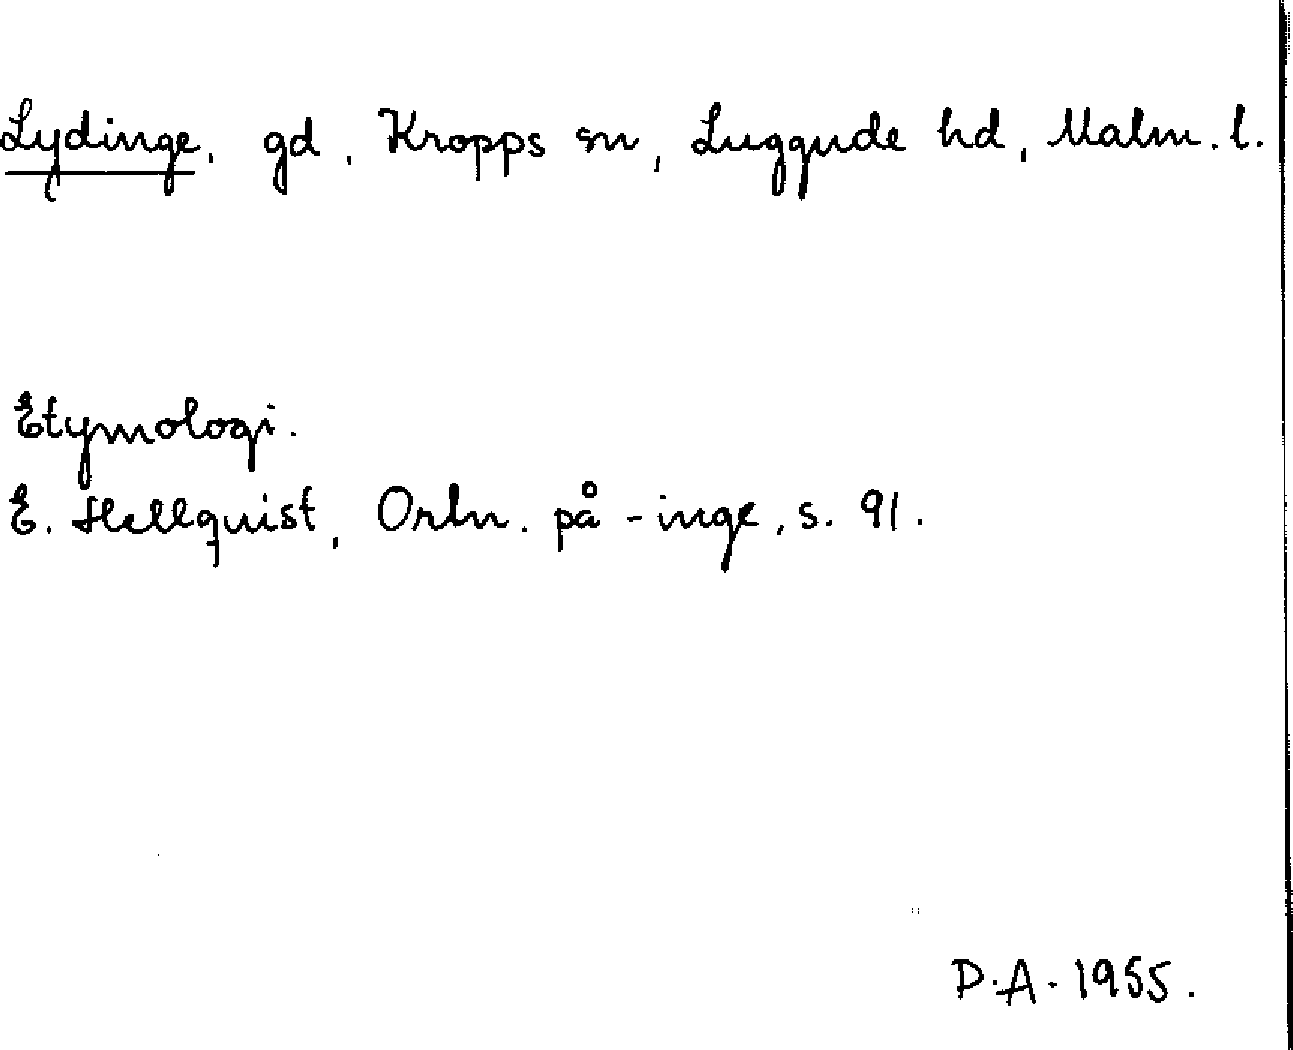 Lydinge, gd, Kropps sn, Luggude hd, Malm. l.
Etymologi.
E. Hellquist, Ortn. på -inge, s. 91.
P.A. 1955.